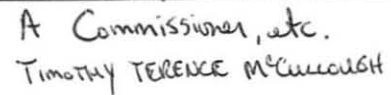 A Commissioner, etc.
TIMOTHY TERENCE McCULLOUGH